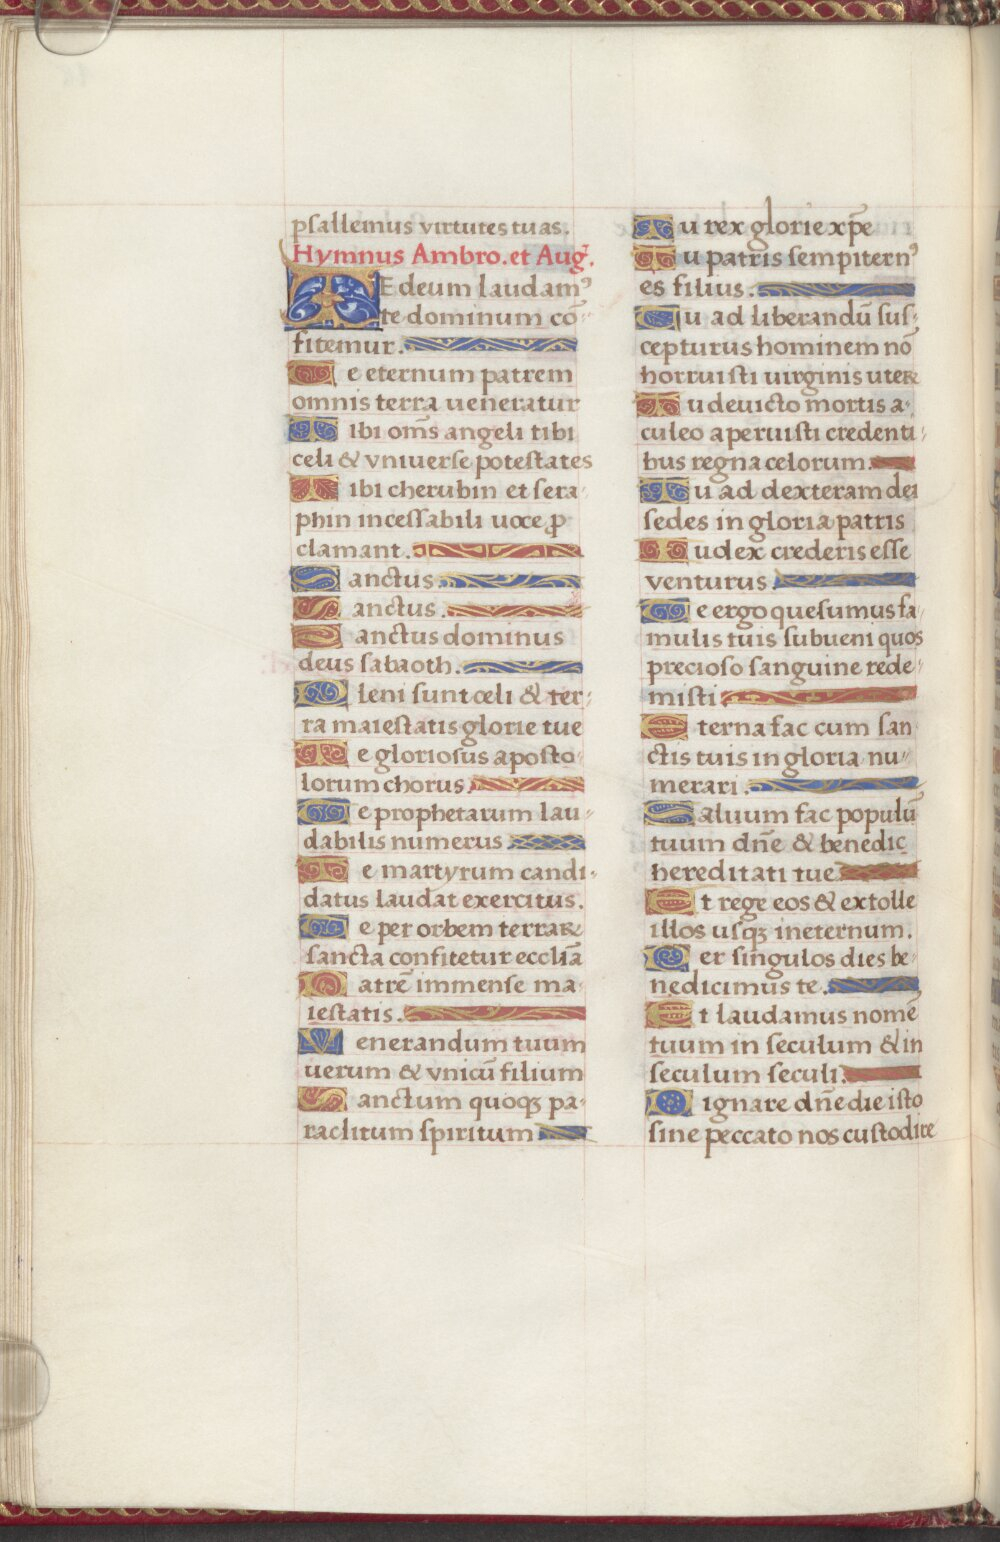 psallemus virtutes tuas.
Hymnus Ambro. et Augꝰ.
TE deum laudamꝰ
te dominum cō-
fitemur.
Te eternum patrem
omnis terra ueneratur
Tibi om̄s angeli tibi
celi & vniuerse potestates
Tibi cherubin et sera-
phin incessabili uoce ꝓ
clamant.
Sanctus.
Sanctus.
Sanctus dominus
deus sabaoth.
Pleni sunt celi & ter-
ra maiestatis glorie tue
Te gloriosus aposto-
lorum chorus.
Te prophetarum lau-
dabilis numerus
Te martyrum candi-
datus laudat exercitus.
Te per orbem terraꝝ
sancta confitetur eccliā
Patrē immense ma-
iestatis.
Venerandum tuum
uerum & vnicū filium
Sanctum quoqꝫ pa-
raclitum spiritum
Tu rex glorie xp̄e
Tu patris sempiternꝰ
es filius.
Tu ad liberandū sus-
cepturus hominem nō
horruisti uirginis uteꝝ
Tu deuicto mortis a-
culeo aperuisti credenti-
bus regna celorum.
Tu ad dexteram dei
sedes in gloria patris
Iudex crederis esse
venturus.
Te ergo quesumus fa-
mulis tuis subueni quos
precioso sanguine rede-
misti
Eterna fac cum san-
ctis tuis in gloria nu-
merari.
Saluum fac populū
tuum dn̄e & benedic
hereditati tue
Et rege eos & extolle
illos usqꝫ ineternum.
Per singulos dies be-
nedicimus te.
Et laudamus nomē
tuum in seculum & in
seculum seculi.
Dignare dn̄e die isto
sine peccato nos custodire